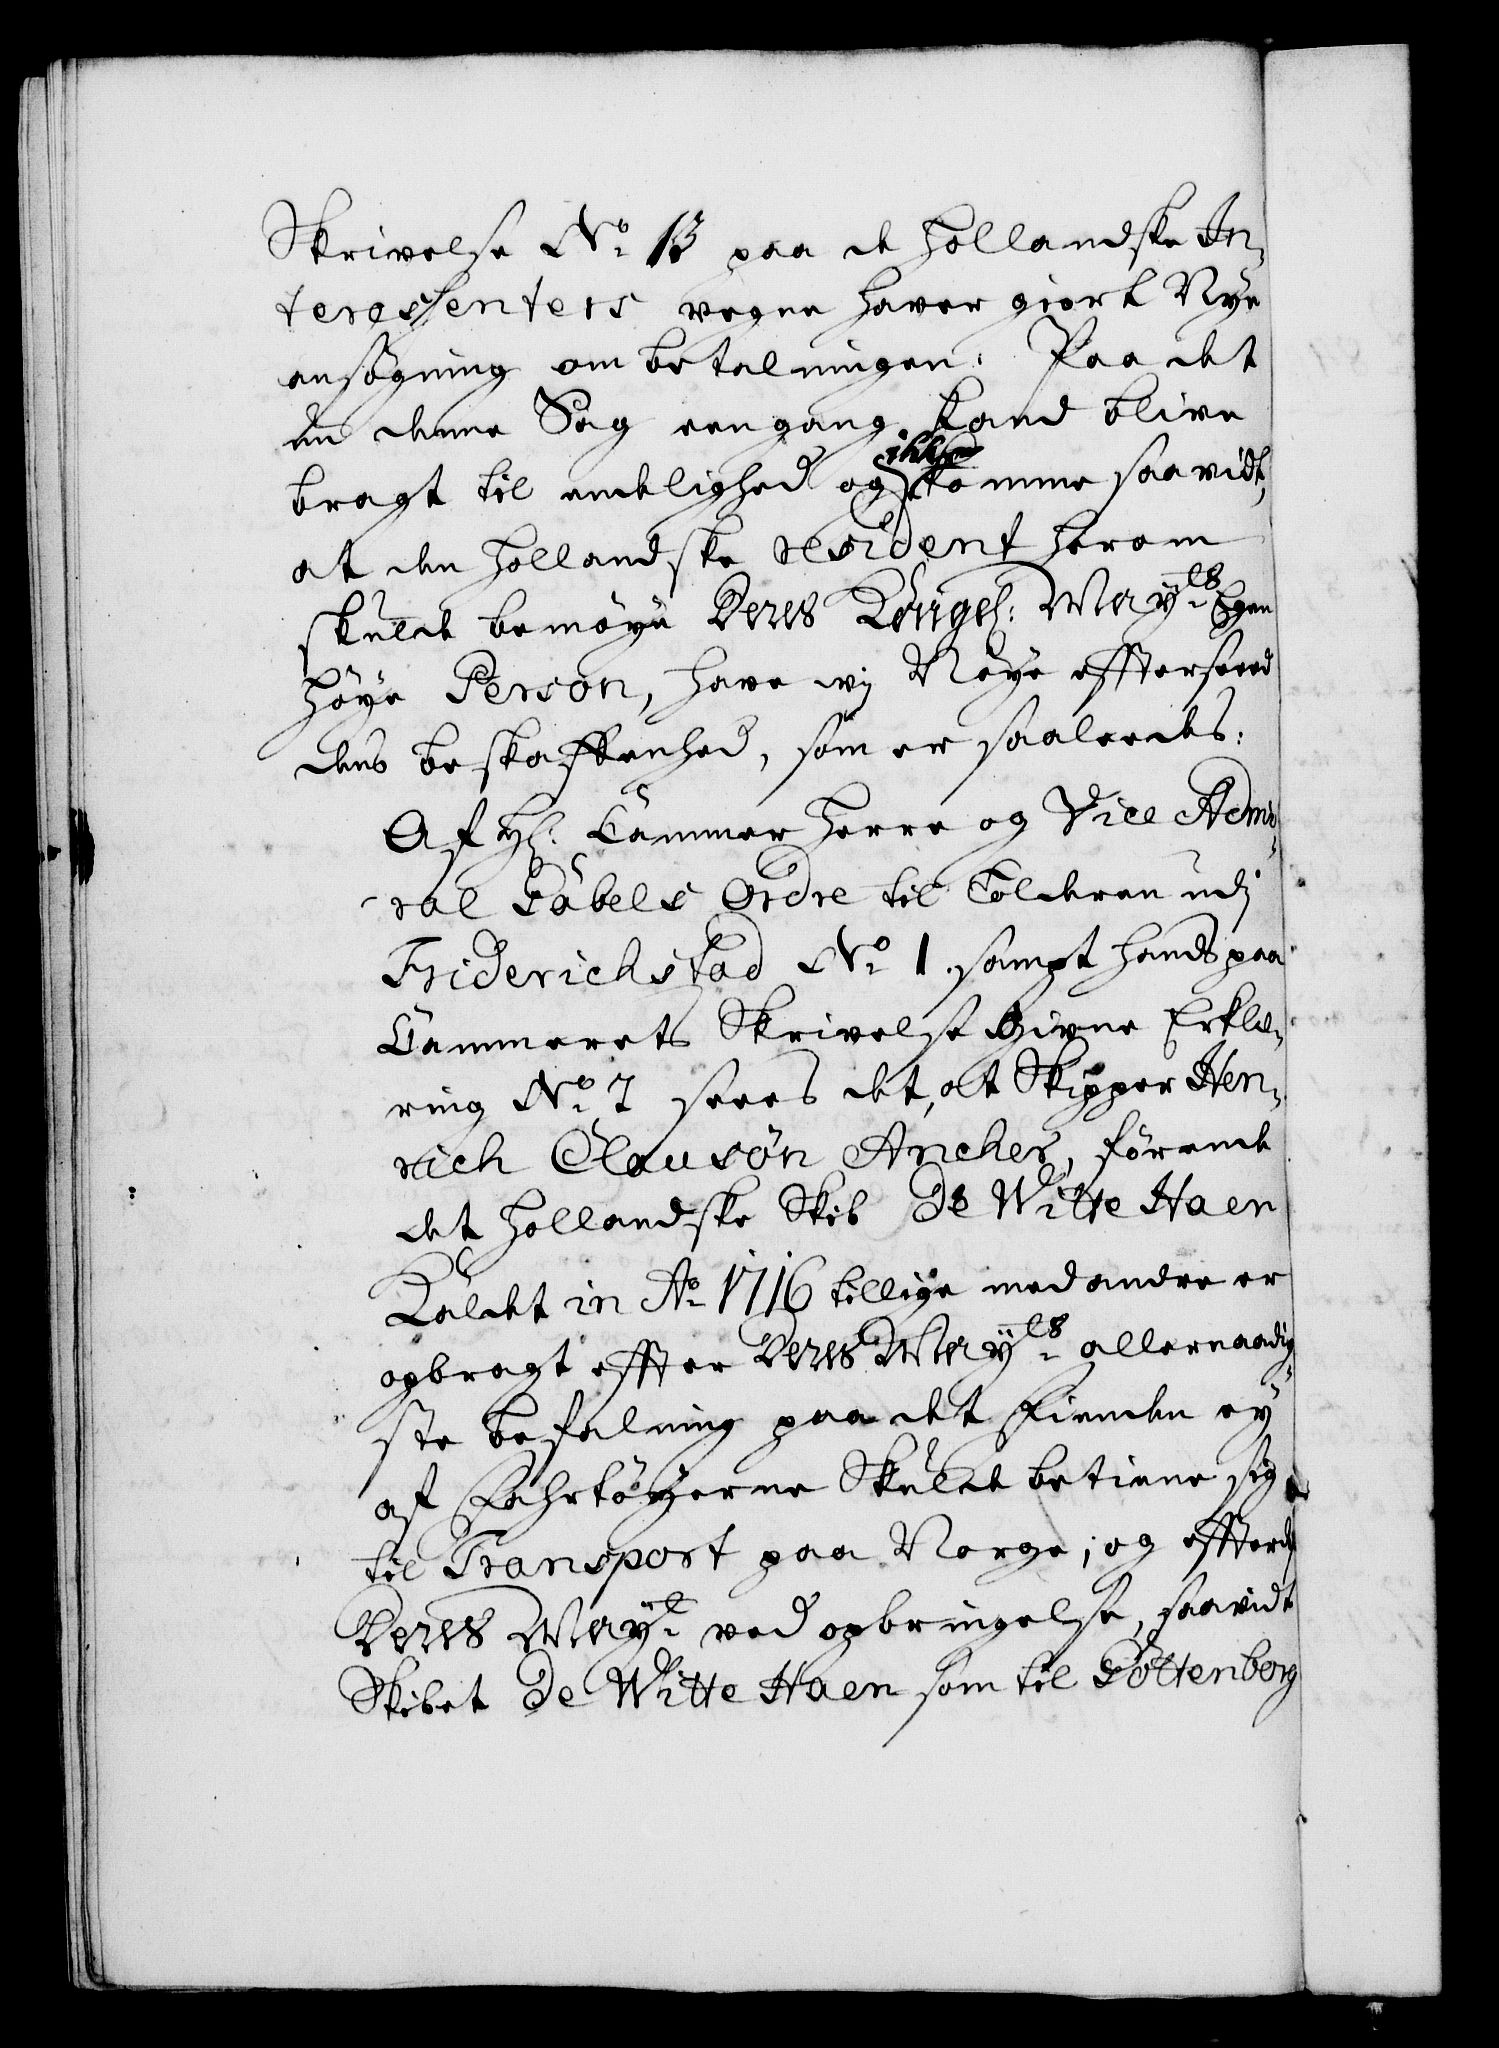 Skrivelse No. 13 paa de Hollandske In-
teressenters vegne haver giort Nye
ansøgning om betalningen. Paa det
nu denne Sag eengang kand blive
bragt til endelighed og ikke komme saavidt,
at den Hollandske resident herom
skulde bemøye Deres Kongel: Mayts Egen
høye Person, have wij Nøye effterseed
dens beskaffenhed, som er saaledes:
Af Hr: Cammer Herre og Vice Admi-
ral Gabels Ordre til Tolderen udj
Friderichstad No. 1 sampt hands paa
Cammerets Skrivelse Givne Erklæ-
ring No. 7 sees det, at Skipper Hen-
rich Clausøn Ancker, førende
det Hollandske Skib De Witte Haen
Kaldet in Ao. 1716 tillige med andre er
opbragt effter Deres Mayts allernaadig-
ste befalning paa det Fienden ey
af Fahrtøyerne Skulde betiene sig
til Transport paa Norge; og effterdj
Deres Mayt ved opbringelse, saavidt
Skibet De Witte Haen som til Gottenborg